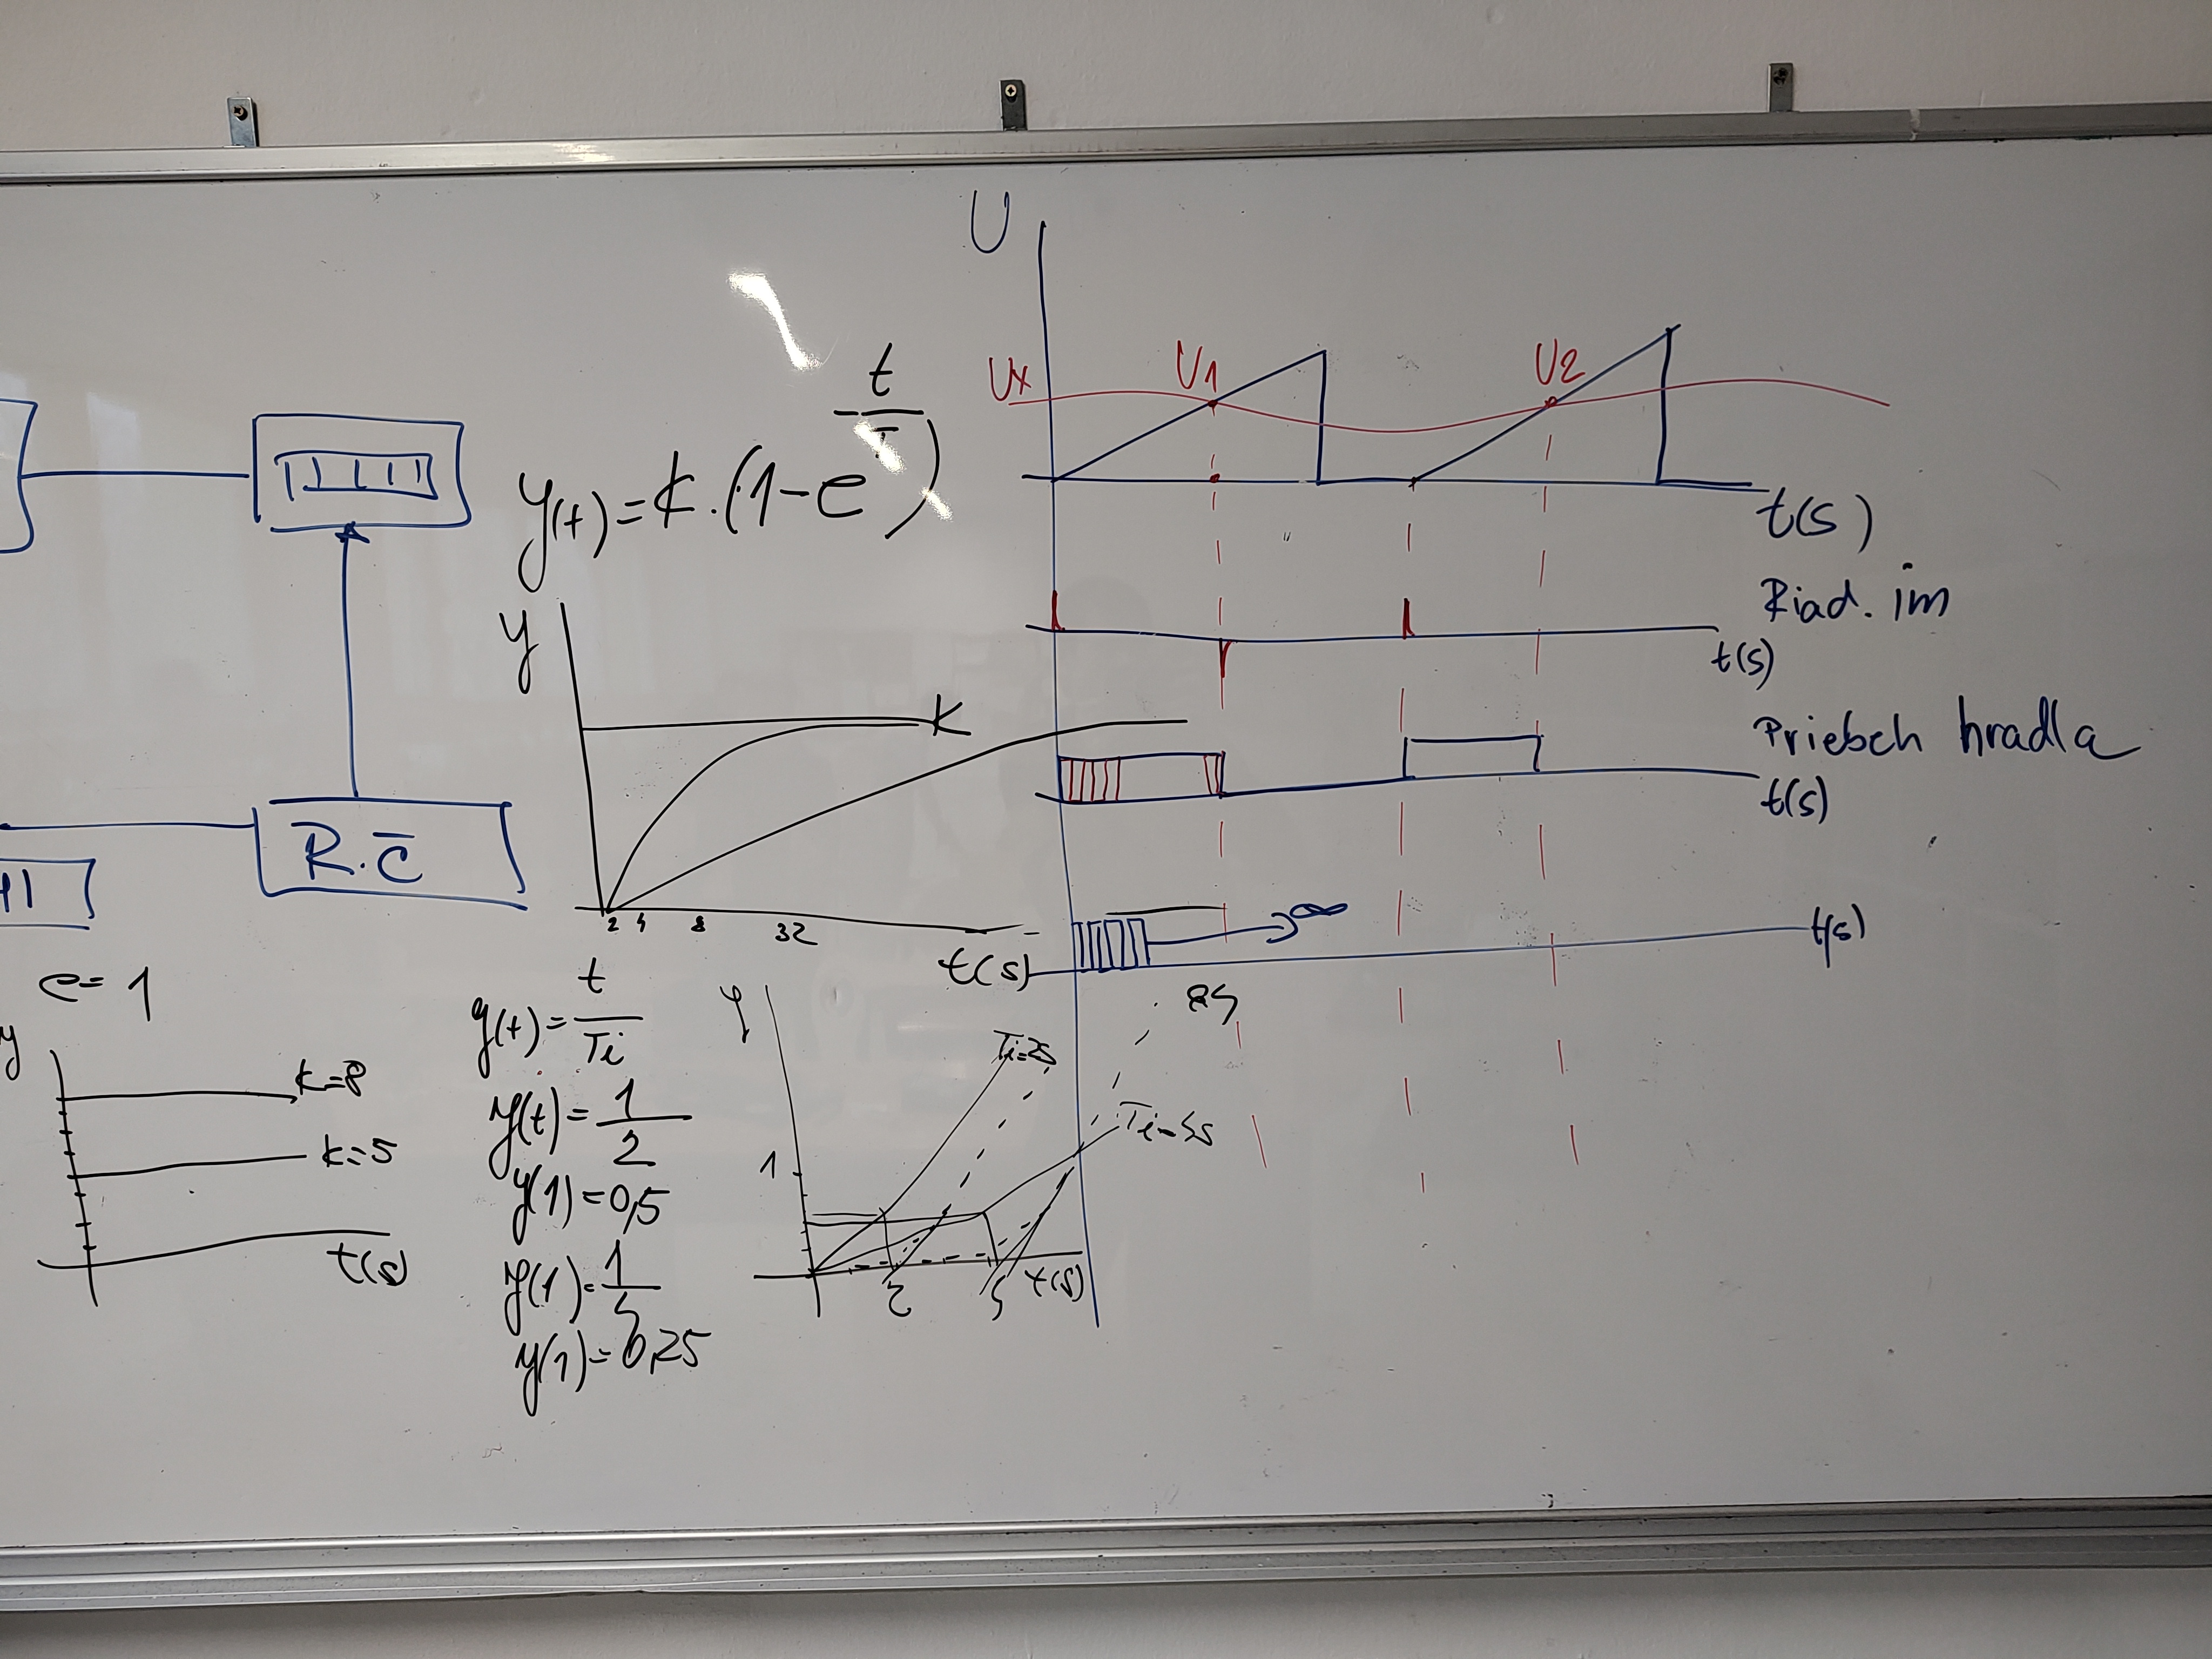 U
Ux
U1
U2
t(s)
Riad. im
t(s)
Priebeh hradla
t(s)
∞
t(s)
y(t)=k.(1-e^-t/T)
y
K
2 4 8 32
t(s)
R.č
e=1
y
k=8
k=5
t(s)
y(t)=t/Ti
y(t)=1/2
y(1)=0,5
y(1)=1/4
y(1)=0,25
y
1
Ti=2s
Ti=4s
2
4
t(s)